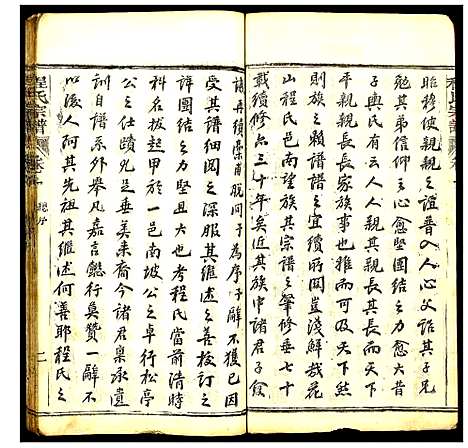 昭穆使親親之誼普入人心父詔其子兄
勉其弟信仰之心愈堅團結之力愈大昔
子輿氏有云人人親其親長其長而天下
平親親長長家族事也雅而可及天下然
則族之譜之宜續所關豈淺鮮哉花
山程氏其宗譜之肇修垂七十
載續修三十年矣近其族中諸君子復
議再續藁甫脫問序於予辭不獲已因
受其譜細閱之深服其維述之善校訂之
詳團結之力之大也考程氏當前清時
科名拔起甲於一邑南坡公之卓行松亭
公之仕蹟尤是垂美來裔今諸君稟承遺
訓自譜系外舉凡嘉言懿行莫贊一辭不
以後人阿其先祖其維述何善耶程氏之
程氏宗譜
卷首
序
二